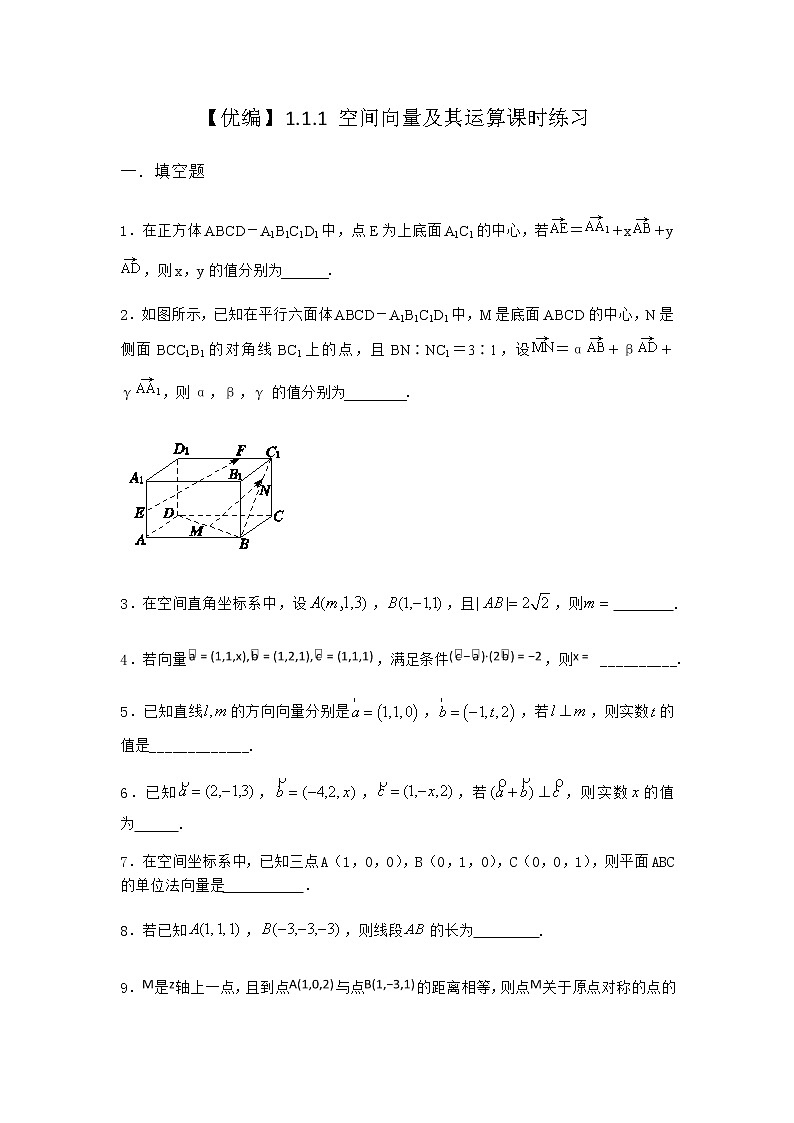 【优编】1.1.1 空间向量及其运算课时练习
一．填空题
1.在正方体ABCD－A₁B₁C₁D₁中，点E为上底面A₁C₁的中心，若AE⃗=AA⃗₁+xAB⃗+y
AD⃗，则x，y的值分别为______.
2.如图所示，已知在平行六面体ABCD－A₁B₁C₁D₁中，M是底面ABCD的中心，N是
侧面BCC₁B₁的对角线BC₁上的点，且BN∶NC₁＝3∶1，设MN⃗＝αAB⃗＋βAD⃗＋
γAA⃗₁，则α，β，γ的值分别为________.
D₁ F C₁
A₁ B₁
N
E D C
M
A B
3.在空间直角坐标系中，设A(m,1,3)，B(1,−1,1)，且|AB|=2√2，则m= ________.
4.若向量a=(1,1,x),b=(1,2,1),c=(1,1,1)，满足条件(c−a)·(2b)=−2，则x= __________.
5.已知直线l,m的方向向量分别是a=(1,1,0)，b=(−1,t,2)，若l⊥m，则实数t的
值是_____________.
6.已知a=(2,−1,3)，b=(−4,2,x)，c=(1,−x,2)，若(a+b)⊥c，则实数x的值
为______.
7.在空间坐标系中，已知三点A（1，0，0），B（0，1，0），C（0，0，1），则平面ABC
的单位法向量是__________.
8.若已知A(1,1,1)，B(−3,−3,−3)，则线段AB的长为_________.
9.M是z轴上一点，且到点A(1,0,2)与点B(1,−3,1)的距离相等，则点M关于原点对称的点的